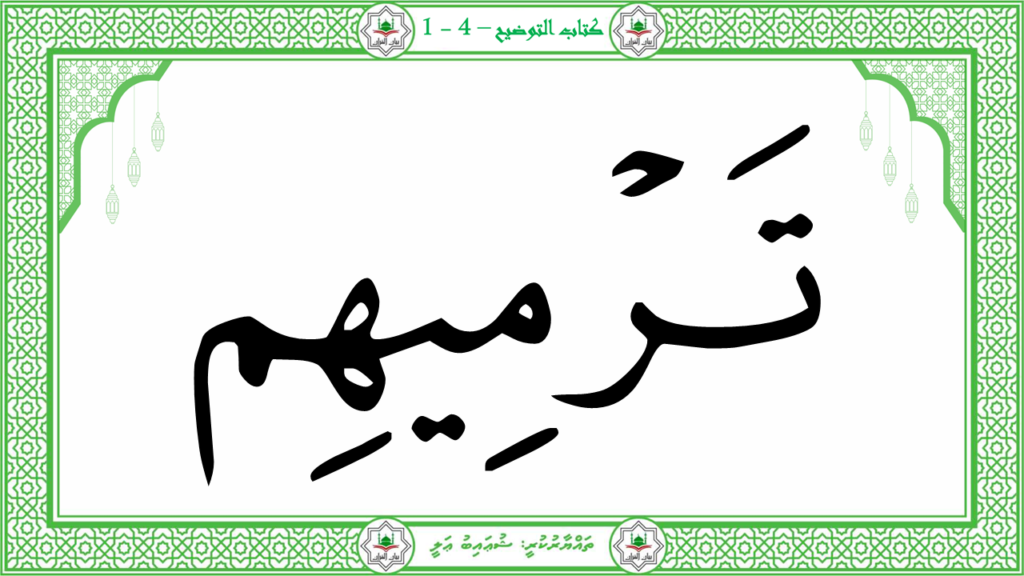 كتاب التوضيح – 4 - 1
تَرْمِيهِم
ތައްޔާރުކުރީ: ޝުޢައިބު ޢަލީ